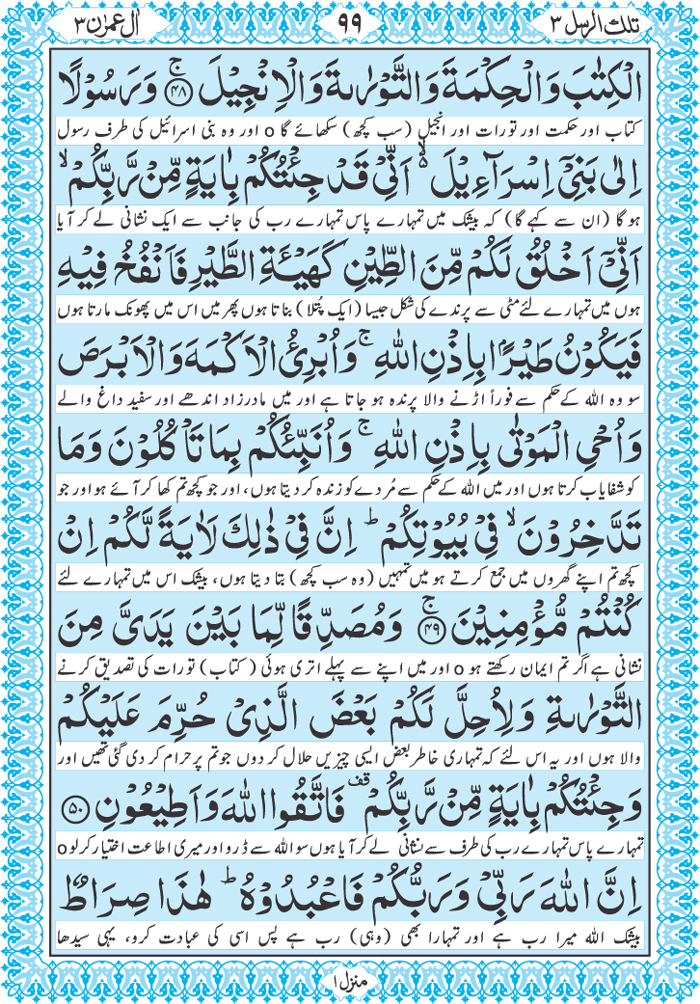 تلك الرسل ٣
٩٩
اٰل عمرٰن ٣
الْكِتٰبَ وَالْحِكْمَةَ وَالتَّوْرٰىةَ وَالْاِنْجِيْلَ ۚ ﴿٤٨﴾ وَرَسُوْلًا
کتاب اور حکمت اور تورات اور انجیل (سب کچھ) سکھائے گا o اور وہ بنی اسرائیل کی طرف رسول
اِلٰى بَنِيْۤ اِسْرَآءِيْلَ ۙ۬ اَنِّيْ قَدْ جِئْتُكُمْ بِاٰيَةٍ مِّنْ رَّبِّكُمْ ۙ
ہو گا (ان سے کہے گا) کہ بیشک میں تمہارے پاس تمہارے رب کی جانب سے ایک نشانی لے کر آیا
اَنِّيْۤ اَخْلُقُ لَكُمْ مِّنَ الطِّيْنِ كَهَيْـَٔةِ الطَّيْرِ فَاَنْفُخُ فِيْهِ
ہوں میں تمہارے لئے مٹی سے پرندے کی شکل جیسا (ایک پُتلا) بناتا ہوں پھر میں اس میں پھونک مارتا ہوں
فَيَكُوْنُ طَيْرًۢا بِاِذْنِ اللّٰهِ ۚ وَاُبْرِئُ الْاَكْمَهَ وَالْاَبْرَصَ
سو وہ اللہ کے حکم سے فوراً اڑنے والا پرندہ ہو جاتا ہے اور میں مادرزاد اندھے اور سفید داغ والے
وَاُحْيِ الْمَوْتٰى بِاِذْنِ اللّٰهِ ۚ وَاُنَبِّئُكُمْ بِمَا تَاْكُلُوْنَ وَمَا
کو شفایاب کرتا ہوں اور میں اللہ کے حکم سے مُردے کو زندہ کر دیتا ہوں، اور جو کچھ تم کھا کر آئے ہو اور جو
تَدَّخِرُوْنَ ۙ فِيْ بُيُوْتِكُمْ ؕ اِنَّ فِيْ ذٰلِكَ لَاٰيَةً لَّكُمْ اِنْ
کچھ تم اپنے گھروں میں جمع کرتے ہو میں تمہیں (وہ سب کچھ) بتا دیتا ہوں، بیشک اس میں تمہارے لئے
كُنْتُمْ مُّؤْمِنِيْنَ ۚ ﴿٤٩﴾ وَمُصَدِّقًا لِّمَا بَيْنَ يَدَيَّ مِنَ
نشانی ہے اگر تم ایمان رکھتے ہو o اور میں اپنے سے پہلے اتری ہوئی (کتاب) تورات کی تصدیق کرنے
التَّوْرٰىةِ وَلِاُحِلَّ لَكُمْ بَعْضَ الَّذِيْ حُرِّمَ عَلَيْكُمْ
والا ہوں اور یہ اس لئے کہ تمہاری خاطر بعض ایسی چیزیں حلال کر دوں جو تم پر حرام کر دی گئی تھیں اور
وَجِئْتُكُمْ بِاٰيَةٍ مِّنْ رَّبِّكُمْ ۫ قف فَاتَّقُوا اللّٰهَ وَاَطِيْعُوْنِ ﴿٥٠﴾
تمہارے پاس تمہارے رب کی طرف سے نشانی لے کر آیا ہوں سو اللہ سے ڈرو اور میری اطاعت اختیار کر لو o
اِنَّ اللّٰهَ رَبِّيْ وَرَبُّكُمْ فَاعْبُدُوْهُ ؕ هٰذَا صِرَاطٌ
بیشک اللہ میرا رب ہے اور تمہارا بھی (وہی) رب ہے پس اسی کی عبادت کرو، یہی سیدھا
منزل ١